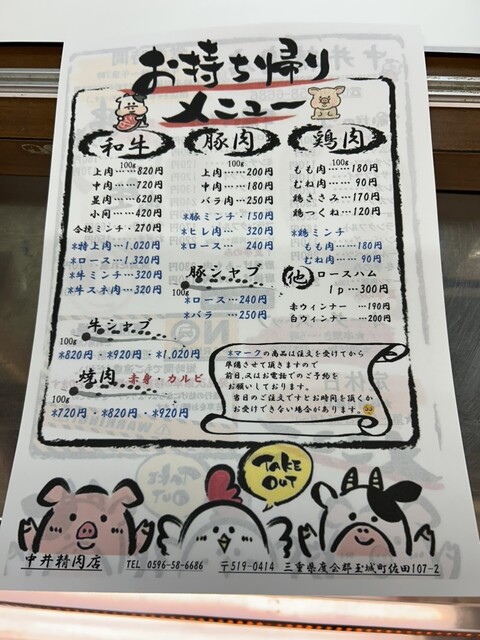 お持ち帰り
メニュー
和牛
100g
上肉…820円
中肉……720円
並肉……620円
小間……420円
合挽ミンチ・270円
*特上肉…1,020円
*ロース…1,320円
*牛ミンチ…320円
*牛スネ肉…320円
牛シャブ
100g
*820円・*920円・*1,020円
焼肉 赤身・カルビ
100g
*720円・*820円・*920円
豚肉
100g
上肉……200円
中肉……180円
バラ肉…250円
*豚ミンチ・150円
*ヒレ肉…320円
*ロース…240円
豚シャブ
100g
*ロース…240円
*バラ…250円
鶏肉
100g
もも肉……180円
むね肉……90円
鶏ささみ…170円
鶏つくね…120円
*鶏ミンチ
もも肉……180円
むね肉……90円
他 ロースハム
1p…300円
赤ウィンナー…190円
白ウィンナー…200円
*マークの商品は注文を受けてから
準備させて頂きますので
前日、又はお電話でのご予約を
お願いしております。
当日のご注文ですとお時間を頂くか
お受けできない場合があります。
TAKE
OUT
中井精肉店 TEL 0596-58-6686 〒519-0414 三重県度会郡玉城町佐田107-2